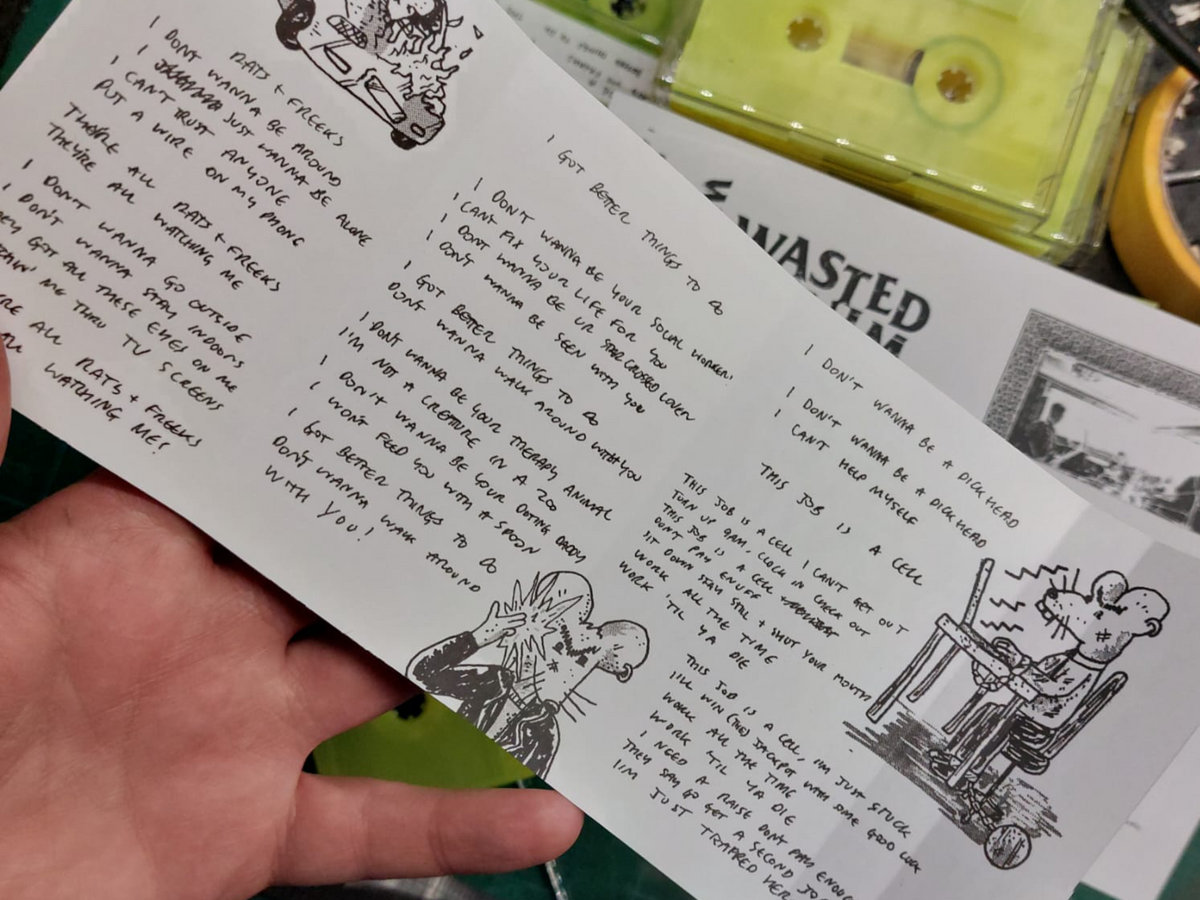 RATS + FREEKS
I DONT WANNA BE AROUND
I JUST WANNA BE ALONE
I CAN'T TRUST ANYONE
PUT A WIRE ON MY PHONE
THEYRE ALL RATS + FREEKS
THEYRE ALL WATCHING ME
I DONT WANNA GO OUTSIDE
I DON'T WANNA STAY INDOORS
GOT ALL THESE EYES ON ME
ME THRU TV SCREENS
ALL RATS + FREEKS
WATCHING ME!
I GOT BETTER THINGS TO DO
I DON'T WANNA BE YOUR SOCIAL WORKER
I CANT FIX YOUR LIFE FOR YOU
I DONT WANNA BE UR STARCROSSED LOVER
I DONT WANNA BE SEEN WITH YOU
I GOT BETTER THINGS TO DO
DONT WANNA WALK AROUND WITH YOU
I DONT WANNA BE YOUR THERAPY ANIMAL
I'M NOT A CREATURE IN A ZOO
I DON'T WANNA BE YOUR DOTING DADDY
I WONT FEED YOU WITH A SPOON
I GOT BETTER THINGS TO DO
DON'T WANNA WALK AROUND
WITH YOU!
I DON'T WANNA BE A DICK HEAD
I DON'T WANNA BE A DICK HEAD
I CAN'T HELP MYSELF
THIS JOB IS A CELL
THIS JOB IS A CELL I CAN'T GET OUT
TURN UP 9AM, CLOCK IN CHECK OUT
THIS JOB IS A CELL
DONT PAY ENUFF
SIT DOWN STAY STILL + SHUT YOUR MOUTH
WORK ALL THE TIME
WORK 'TIL YA DIE
THIS JOB IS A CELL, I'M JUST STUCK
I'LL WIN (THE) JACKPOT WITH SOME GOOD LUCK
WORK ALL THE TIME
WORK 'TIL YA DIE
I NEED A RAISE DONT PAY
THEY SAY GO GET A SECOND
I'M JUST TRAPPED
WASTED